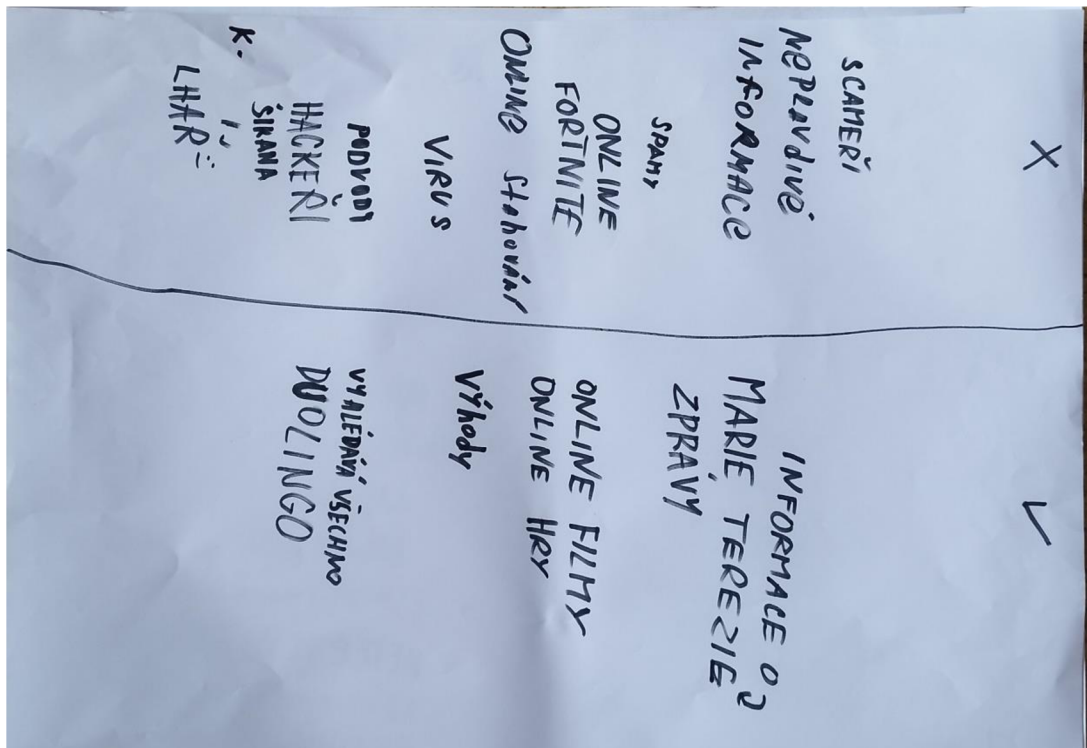 X
SCAMEŘI
NePravdivé
INFORMACe
SPAMY
ONLINE
FORTNITE
ONLINe Stahování
VIRUS
PODVODY
HACKEŘI
ŠIKANA
K.
✓
INFORMACE O
MARIE TEREZIE
ZPRÁVY
ONLINE FILMY
ONLINE HRY
Výhody
VYHLÉDÁVÁ VŠECHNO
DUOLINGO